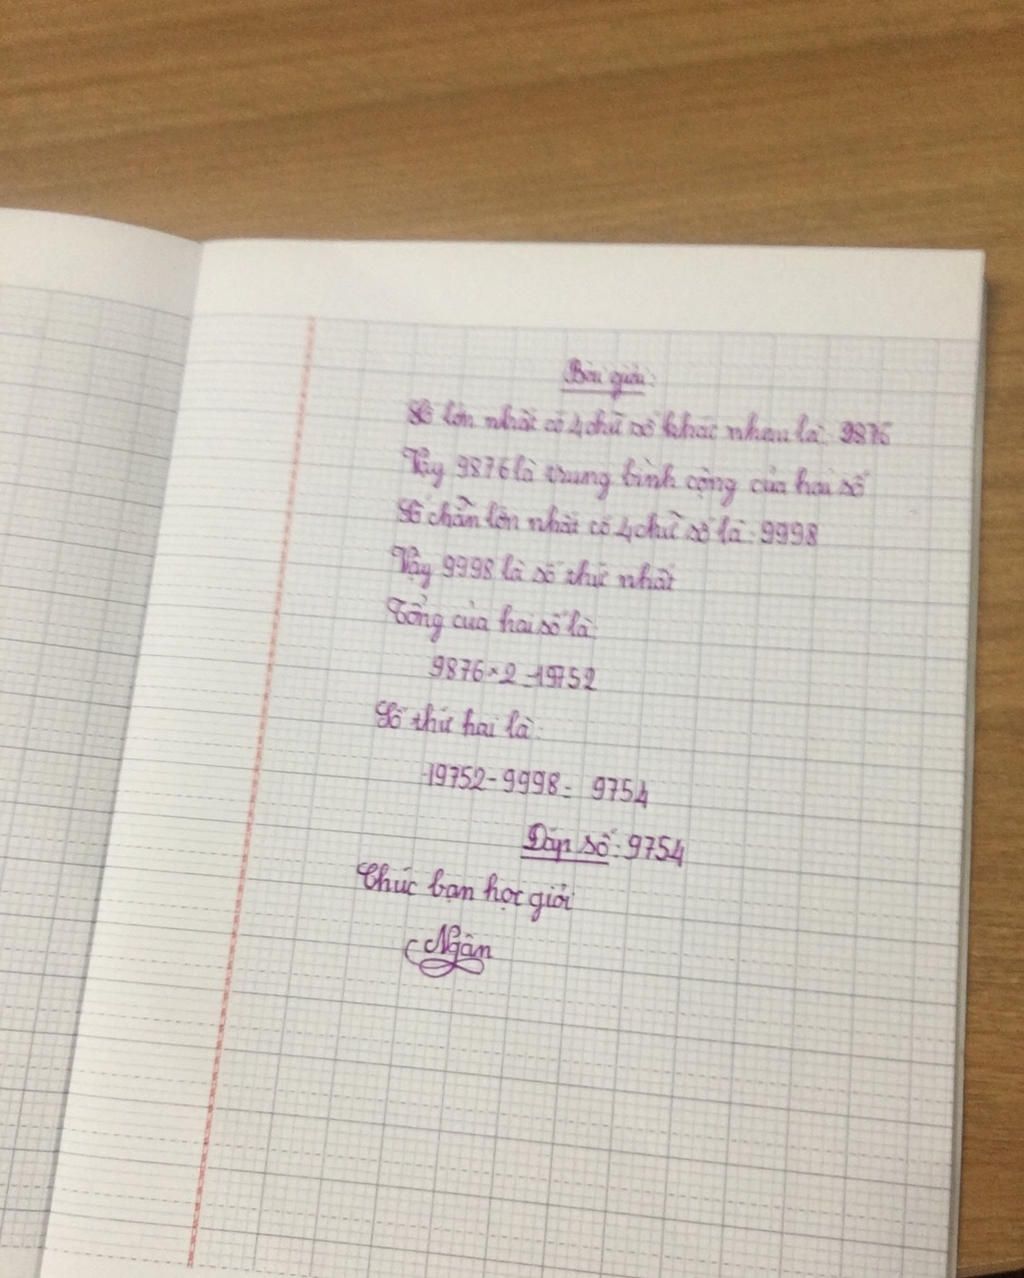 Bài giải:
Số lớn nhất có 4 chữ số khác nhau là: 9876
Vậy 9876 là trung bình cộng của hai số
Số chẵn lớn nhất có 4 chữ số là: 9998
Vậy 9998 là số thứ nhất
Tổng của hai số là:
9876 × 2 = 19752
Số thứ hai là:
19752 - 9998 = 9754
Đáp số: 9754
Chúc bạn học giỏi
Ngân